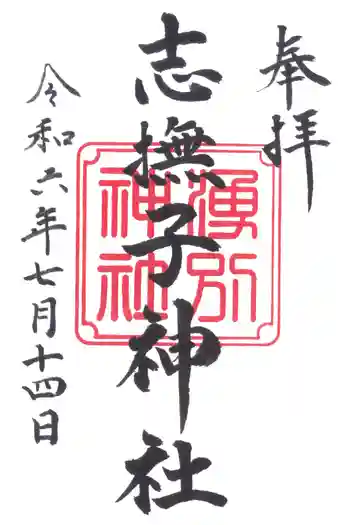 奉拝
志撫子神社
湧別
神社
令和六年七月十四日